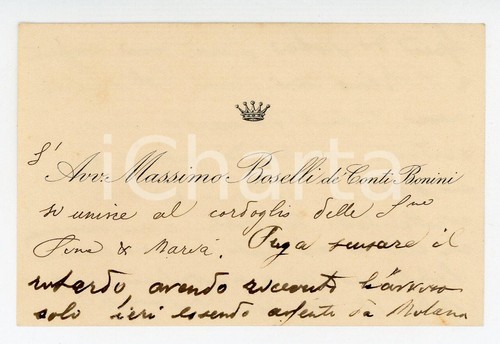 L'
Avv. Massimo Boselli de' Conti Bonini
si unisce al cordoglio delle
& Maria. Prega scusare il
ritardo, avendo ricevuto l'avviso
solo ieri essendo assente da
iCharta